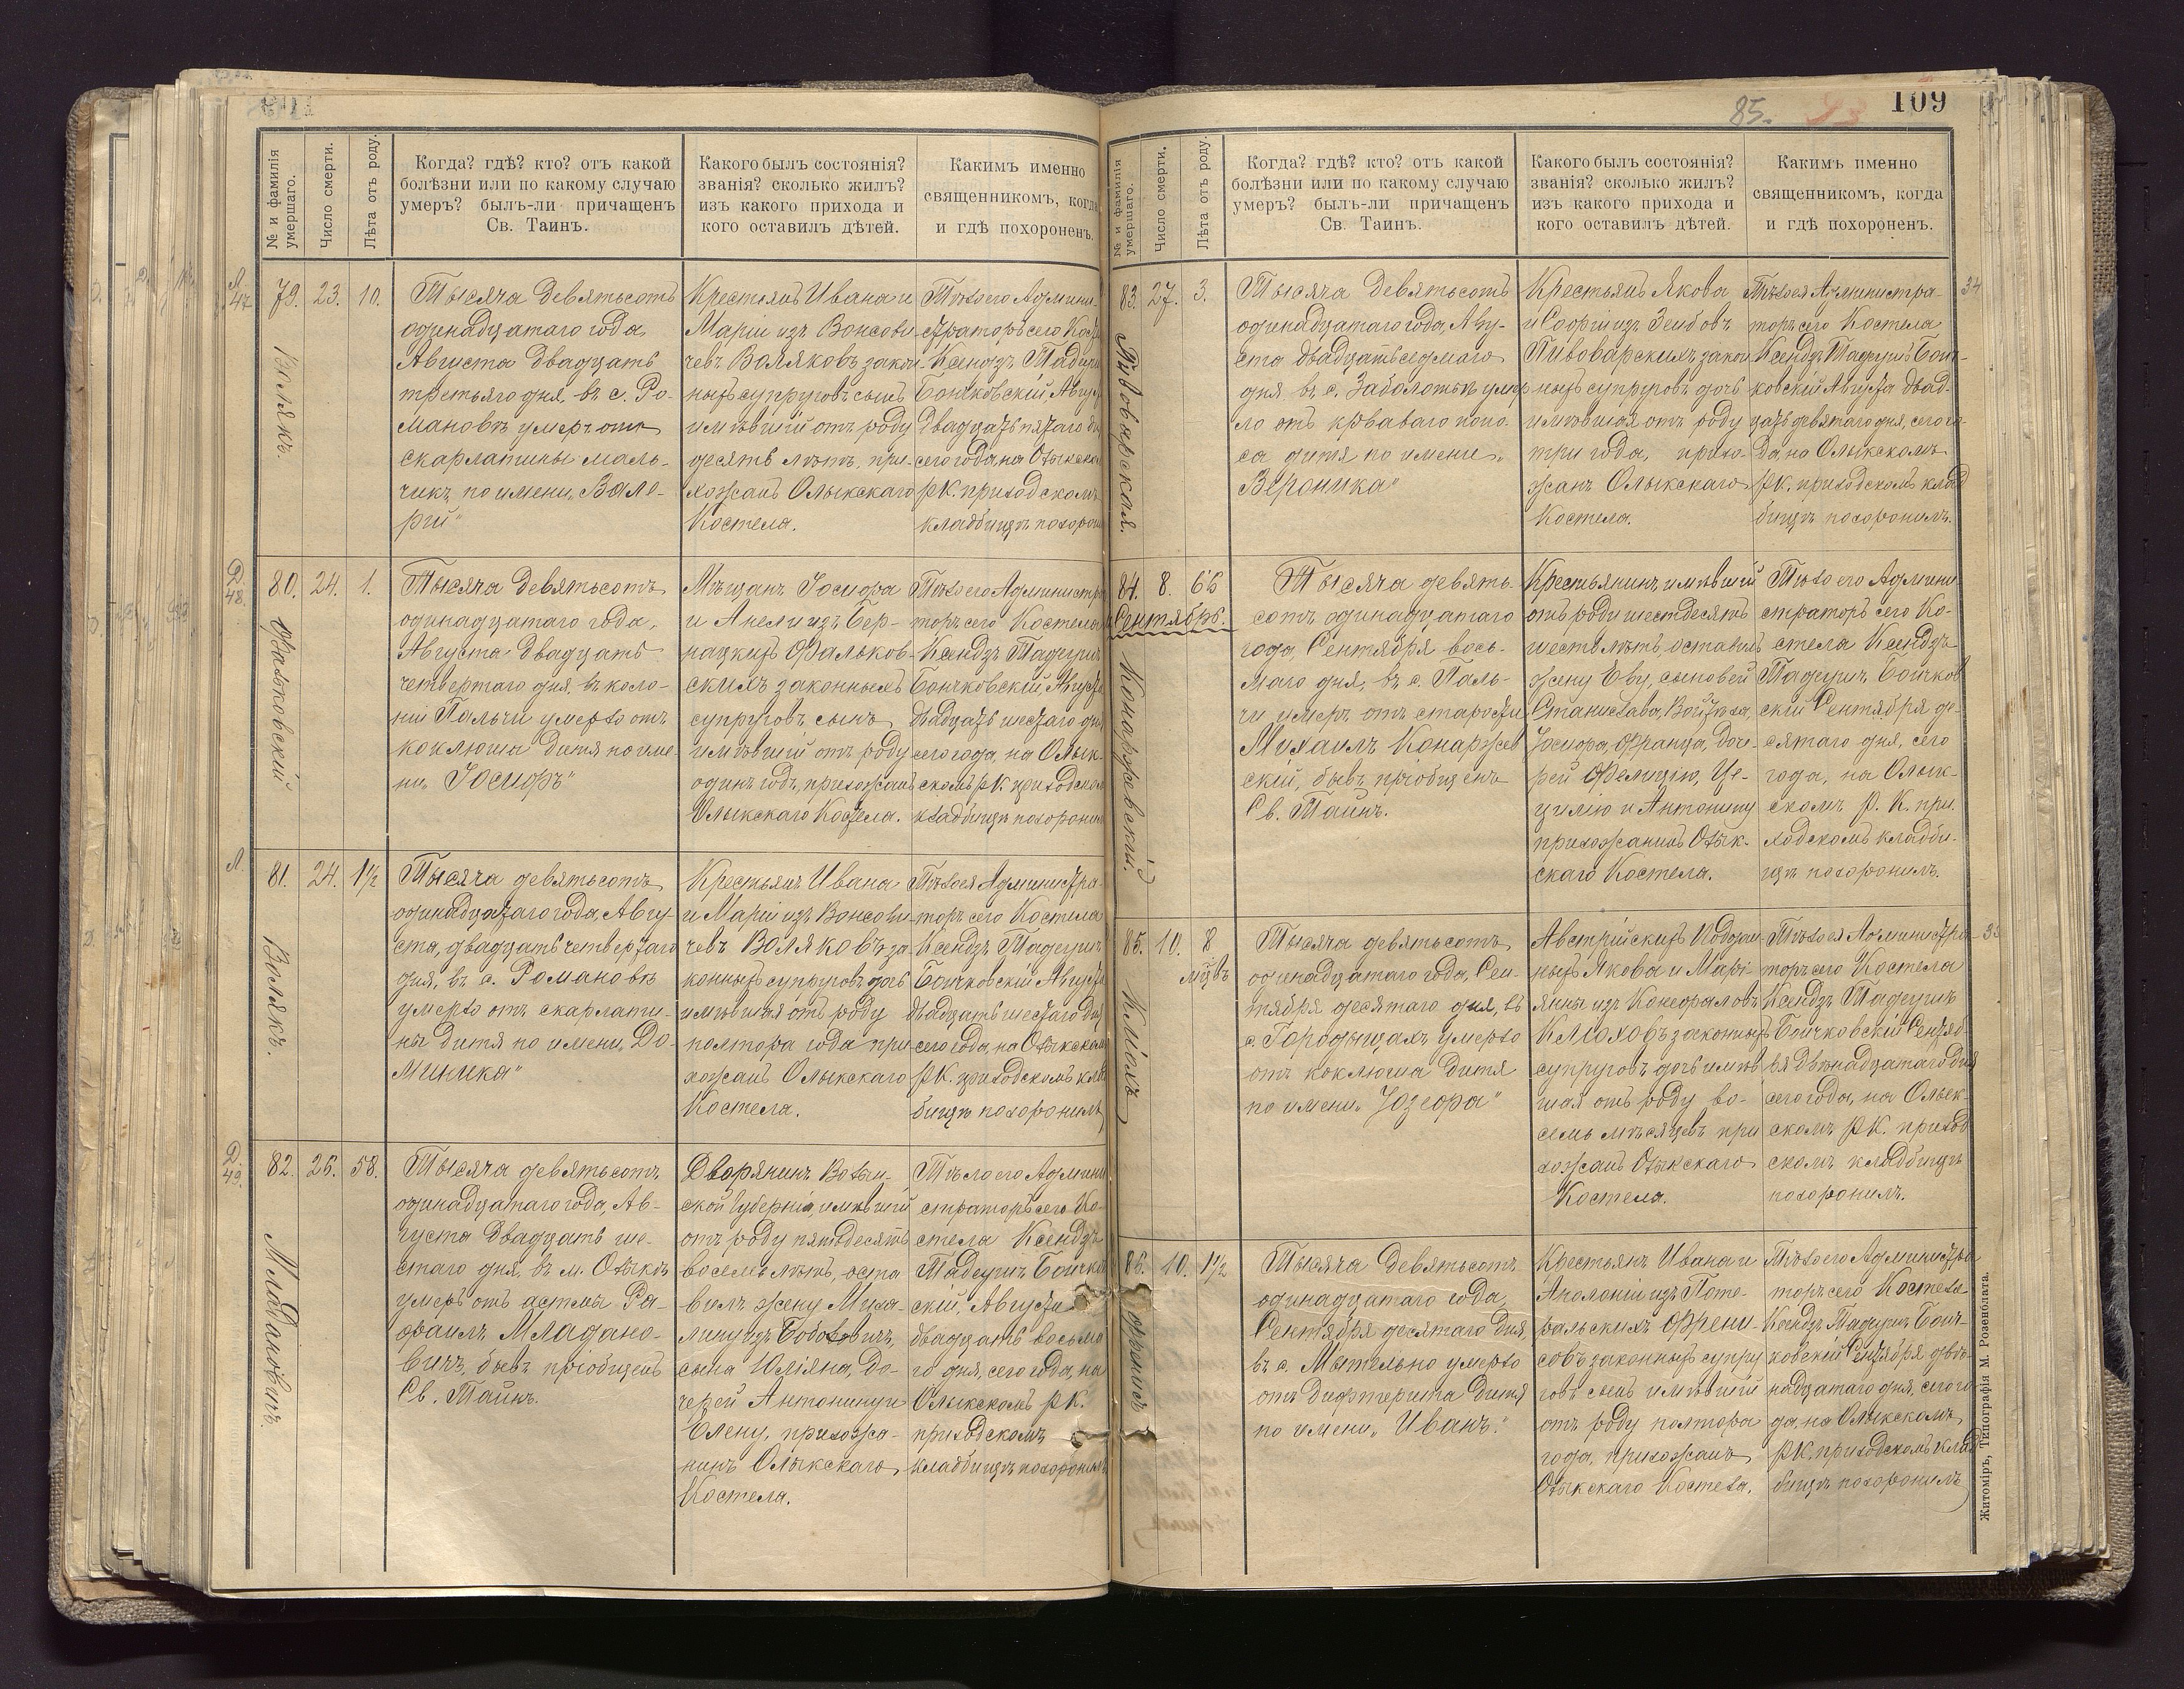 109
85.
№ и фамилія умершаго.
Число смерти.
Лѣта отъ роду.
Когда? гдѣ? кто? отъ какой
болѣзни или по какому случаю
умеръ? былъ-ли причащенъ
Св. Таинъ.
Какого былъ состоянія?
званія? сколько жилъ?
изъ какого прихода и
кого оставилъ дѣтей.
Какимъ именно
священникомъ, когда
и гдѣ похороненъ.
47.
79. 23. 10.
Волякъ.
Тысяча девятьсотъ
одинадцатаго года,
Августа двадцать
третьяго дня, въ с. Ро-
мановкѣ умеръ отъ
скарлатины маль-
чикъ по имени „Вале-
рій"
Крестьянъ Ивана и
Маріи изъ Вонсови-
чевъ Воляковъ закон-
ныхъ супруговъ сынъ
имѣвшій отъ роду
десять лѣтъ, при-
хожанъ Олыкскаго
Костела.
Тѣло его Админи-
страторъ сего Косте
Ксендзъ Тадеуш
Бончковскій, Авгус
двадцать пятаго д
сего года на Олыкско
р.К. приходскомъ
кладбищѣ похорон
Д.
48.
80. 24. 1.
Фальковскій
Тысяча девятьсотъ
одинадцатаго года,
Августа двадцать
четвертаго дня, въ коло-
ніи Пальчи умерло отъ
коклюша дитя по име-
ни „Іосифъ"
Мѣщанъ Іосифа
и Анели изъ Бер-
нацкихъ Фальков-
скихъ законныхъ
супруговъ сынъ,
имѣвшій отъ роду
одинъ годъ, прихожанъ
Олыкскаго Костела.
Тѣло его Администра
торъ сего Костела
Ксендзъ Тадеушъ
Бончковскій Августа
двадцать шестаго дн
сего года, на Олык-
скомъ р.К. приходском
кладбищѣ похоронил
Л.
81. 24. 1½
Волякъ.
Тысяча девятьсотъ
одинадцатаго года, Авгу-
ста, двадцать четвертаго
дня, въ с. Романовкѣ
умерло отъ скарлати-
ны дитя по имени „До-
миника"
Крестьянъ Ивана
и Маріи изъ Вонсови-
чевъ Воляковъ за-
конныхъ супруговъ дочь
имѣвшая отъ роду
полтора года при-
хожанъ Олыкскаго
Костела.
Тѣло ея Администра-
торъ сего Костела
Ксендзъ Тадеушъ
Бончковскій Августа
двадцать шестаго дня
сего года, на Олыкском
р.К. приходскомъ клад
бищѣ похоронилъ
Д.
49.
82. 26. 58.
Младановичъ.
Тысяча девятьсотъ
одинадцатаго года, Ав-
густа двадцать ше-
стаго дня, въ м. Олыкѣ
умеръ отъ астмы Ра-
фаилъ Младано-
вичъ, бывъ пріобщенъ
Св. Таинъ.
Дворянинъ Волын-
ской Губерніи, имѣвшій
отъ роду пятьдесятъ
восемь лѣтъ, оста
вилъ жену Миха-
лину изъ
сына Юліяна, до-
черей Антонину и
Елену, прихожа-
нинъ Олыкскаго
Костела.
Тѣло его Админи
страторъ сего Ко-
стела Ксендзъ
Тадеушъ Бончков
скій, Августа
двадцать восьма
го дня, сего года, на
Олыкскомъ р.К.
приходскомъ
кладбищѣ похоронилъ
№ и фамилія умершаго.
Число смерти.
Лѣта отъ роду.
Когда? гдѣ? кто? отъ какой
болѣзни или по какому случаю
умеръ? былъ-ли причащенъ
Св. Таинъ.
Какого былъ состоянія?
званія? сколько жилъ?
изъ какого прихода и
кого оставилъ дѣтей.
Какимъ именно
священникомъ, когда
и гдѣ похороненъ.
34
83. 27. 3.
Пивоварская.
Тысяча девятьсотъ
одинадцатаго года, Авгу-
ста двадцать седьмаго
дня въ с. Заболотьи умер
ло отъ кроваваго поно-
са дитя по имени „
Вероника"
Крестьянъ Якова
и Софіи изъ Зембовъ
Пивоварскихъ закон
ныхъ супруговъ дочь
имѣвшая отъ роду
три года, прихо-
жанъ Олыкскаго
Костела.
Тѣло ея Администра-
торъ сего Костела
Ксендзъ Тадеушъ Бонч-
ковскій Августа двад-
цать девятаго дня, сего го-
да на Олыкскомъ
р.К. приходскомъ клад
бищѣ похоронилъ.
84. 8. 66
Сентябрь.
Конаржевскій.
Тысяча девять-
сотъ одинадцатаго
года, Сентября вось-
маго дня, въ с. Паль-
чи умеръ отъ старости
Михаилъ Конаржев
скій, бывъ пріобщенъ
Св. Таинъ.
Крестьянинъ, имѣвшій
отъ роду шестьдесятъ
шесть лѣтъ, оставилъ
жену Еву, сыновей
Станислава, Войтѣха,
Іосифа, Франца, доче-
рей Фелицію, Це-
цилію и Антонину
прихожанинъ Олык-
скаго Костела.
Тѣло его Админи-
страторъ сего Ко-
стела Ксендзъ
Тадеушъ Бончков
скій Сентября де-
сятаго дня, сего
года, на Олык-
скомъ Р. К. при-
ходскомъ кладби-
щѣ похоронилъ.
85. 10. 8
мцѣвъ
Клюхъ
Тысяча девятьсотъ
одинадцатаго года, Сен-
тября десятаго дня, въ
с. Городищахъ умерло
отъ коклюша дитя
по имени „Юзефа"
Австрійскихъ Поддан-
ныхъ Якова и Марі-
янны изъ Конефаловъ
Клюховъ законныхъ
супруговъ дочь имѣв
шая отъ роду во-
семь мѣсяцевъ при
хожанъ Олыкскаго
Костела.
Тѣло ея Администра-
торъ сего Костела
Ксендзъ Тадеушъ
Бончковскій Сентяб
ря двѣнадцатаго дня
сего года, на Олык-
скомъ р.К. приход
скомъ кладбищѣ
похоронилъ.
86. 10. 1½
Тысяча девятьсотъ
одинадцатаго года,
Сентября десятаго дня,
въ с. Мательно умерло
отъ дифтерита дитя
по имени „Иванъ."
Крестьянъ Ивана и
Аполоніи изъ Пото-
ральскихъ
законныхъ супру
говъ сынъ имѣвшій
отъ роду полтора
года, прихожанъ
Олыкскаго Костела.
Тѣло его Администра
торъ сего Костела
Ксендзъ Тадеушъ Бонч-
ковскій Сентября двѣ-
надцатаго дня, сего го
да, на Олыкскомъ
р.К. приходскомъ клад
бищѣ похоронилъ
Житоміръ, Типографія М. Розенблата.